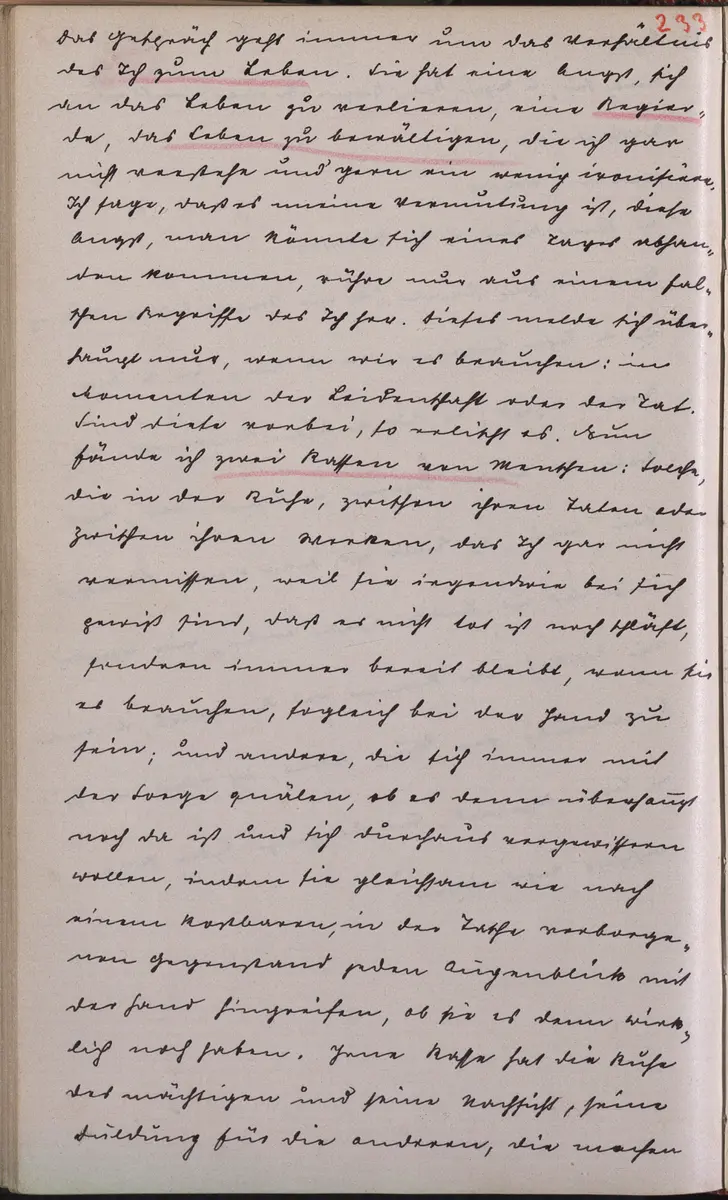 233
Das Gespräch geht immer um das Verhältnis
des Ich zum Leben. Sie hat eine Angst, sich
an das Leben zu verlieren, eine Begier-
de, das Leben zu bewältigen, die ich gar
nicht verstehe und gern ein wenig ironisiere.
Ich sage, daß es meine Vermutung ist, diese
Angst, man könnte sich eines Tages abhan-
den kommen, rühre nur aus einem fal-
schen Begriffe des Ich her. Dieses melde sich über-
haupt nur, wenn wir es brauchen: in
Momenten der Leidenschaft oder der Tat.
Sind diese vorbei, so erlischt es. Nun
fände ich zwei Rassen von Menschen: solche,
die in der Ruhe, zwischen ihren Taten oder
zwischen ihren Werken, das Ich gar nicht
vermissen, weil sie irgendwie bei sich
gewiß sind, daß es nicht tot ist noch schläft,
sondern immer bereit bleibt, wenn sie
es brauchen, sogleich bei der Hand zu
sein; und andere, die sich immer mit
der Sorge quälen, ob es denn überhaupt
noch da ist und sich durchaus vergewissern
wollen, indem sie gleichsam wie nach
einem kostbaren, in der Tasche verborge-
nen Gegenstand jeden Augenblick mit
der Hand hingreifen, ob sie es denn wirk-
lich noch haben. Jene Rasse hat die Ruhe
des mächtigen und seine Nachsicht, seine
Duldung für die anderen, die machen